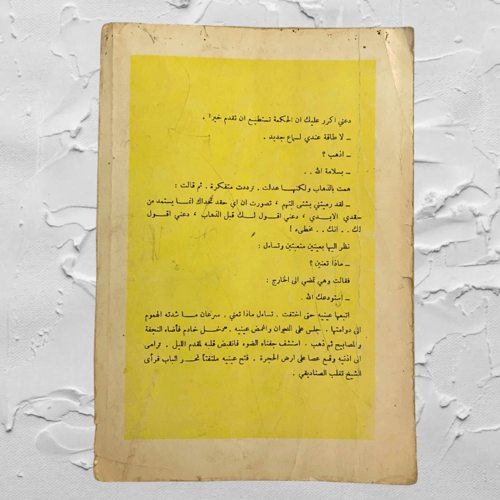 دعني اكرر عليك ان الحكمة تستطيع ان تقدم خيرا .
ــ لا طاقة عندي لسماع جديد .
ــ اذهب ؟
ــ بسلامة الله . .
همت بالذهاب ولكنها عدلت . ترددت متفكرة . ثم قالت :
ــ لقد رميتني بشتى التهم ، تصورت ان اي حقد تحداك انما يستمد من
حقدي الابدي ، دعني اقول لك قبل الذهاب ، دعني اقول
لك . . انك . . مخطىء !
نظر اليها بعينين متعبتين وتساءل :
ــ ماذا تعنين ؟
فقالت وهي تمضي الى الخارج :
ــ استودعك الله .
اتبعها عينيه حتى اختفت . تساءل ماذا تعني . سرعان ما شدته الهموم
الى دوامتها . جلس على الديوان واغمض عينيه . دخل خادم فأضاء النجفة
والمصابيح ثم ذهب . استشف جفناه الضوء فانقبض قلبه لمقدم الليل . ترامى
الى اذنيه وقع عصا على ارض الحجرة . فتح عينيه ملتفتاً نحو الباب فرأى
الشيخ تغلب الصناديقي .